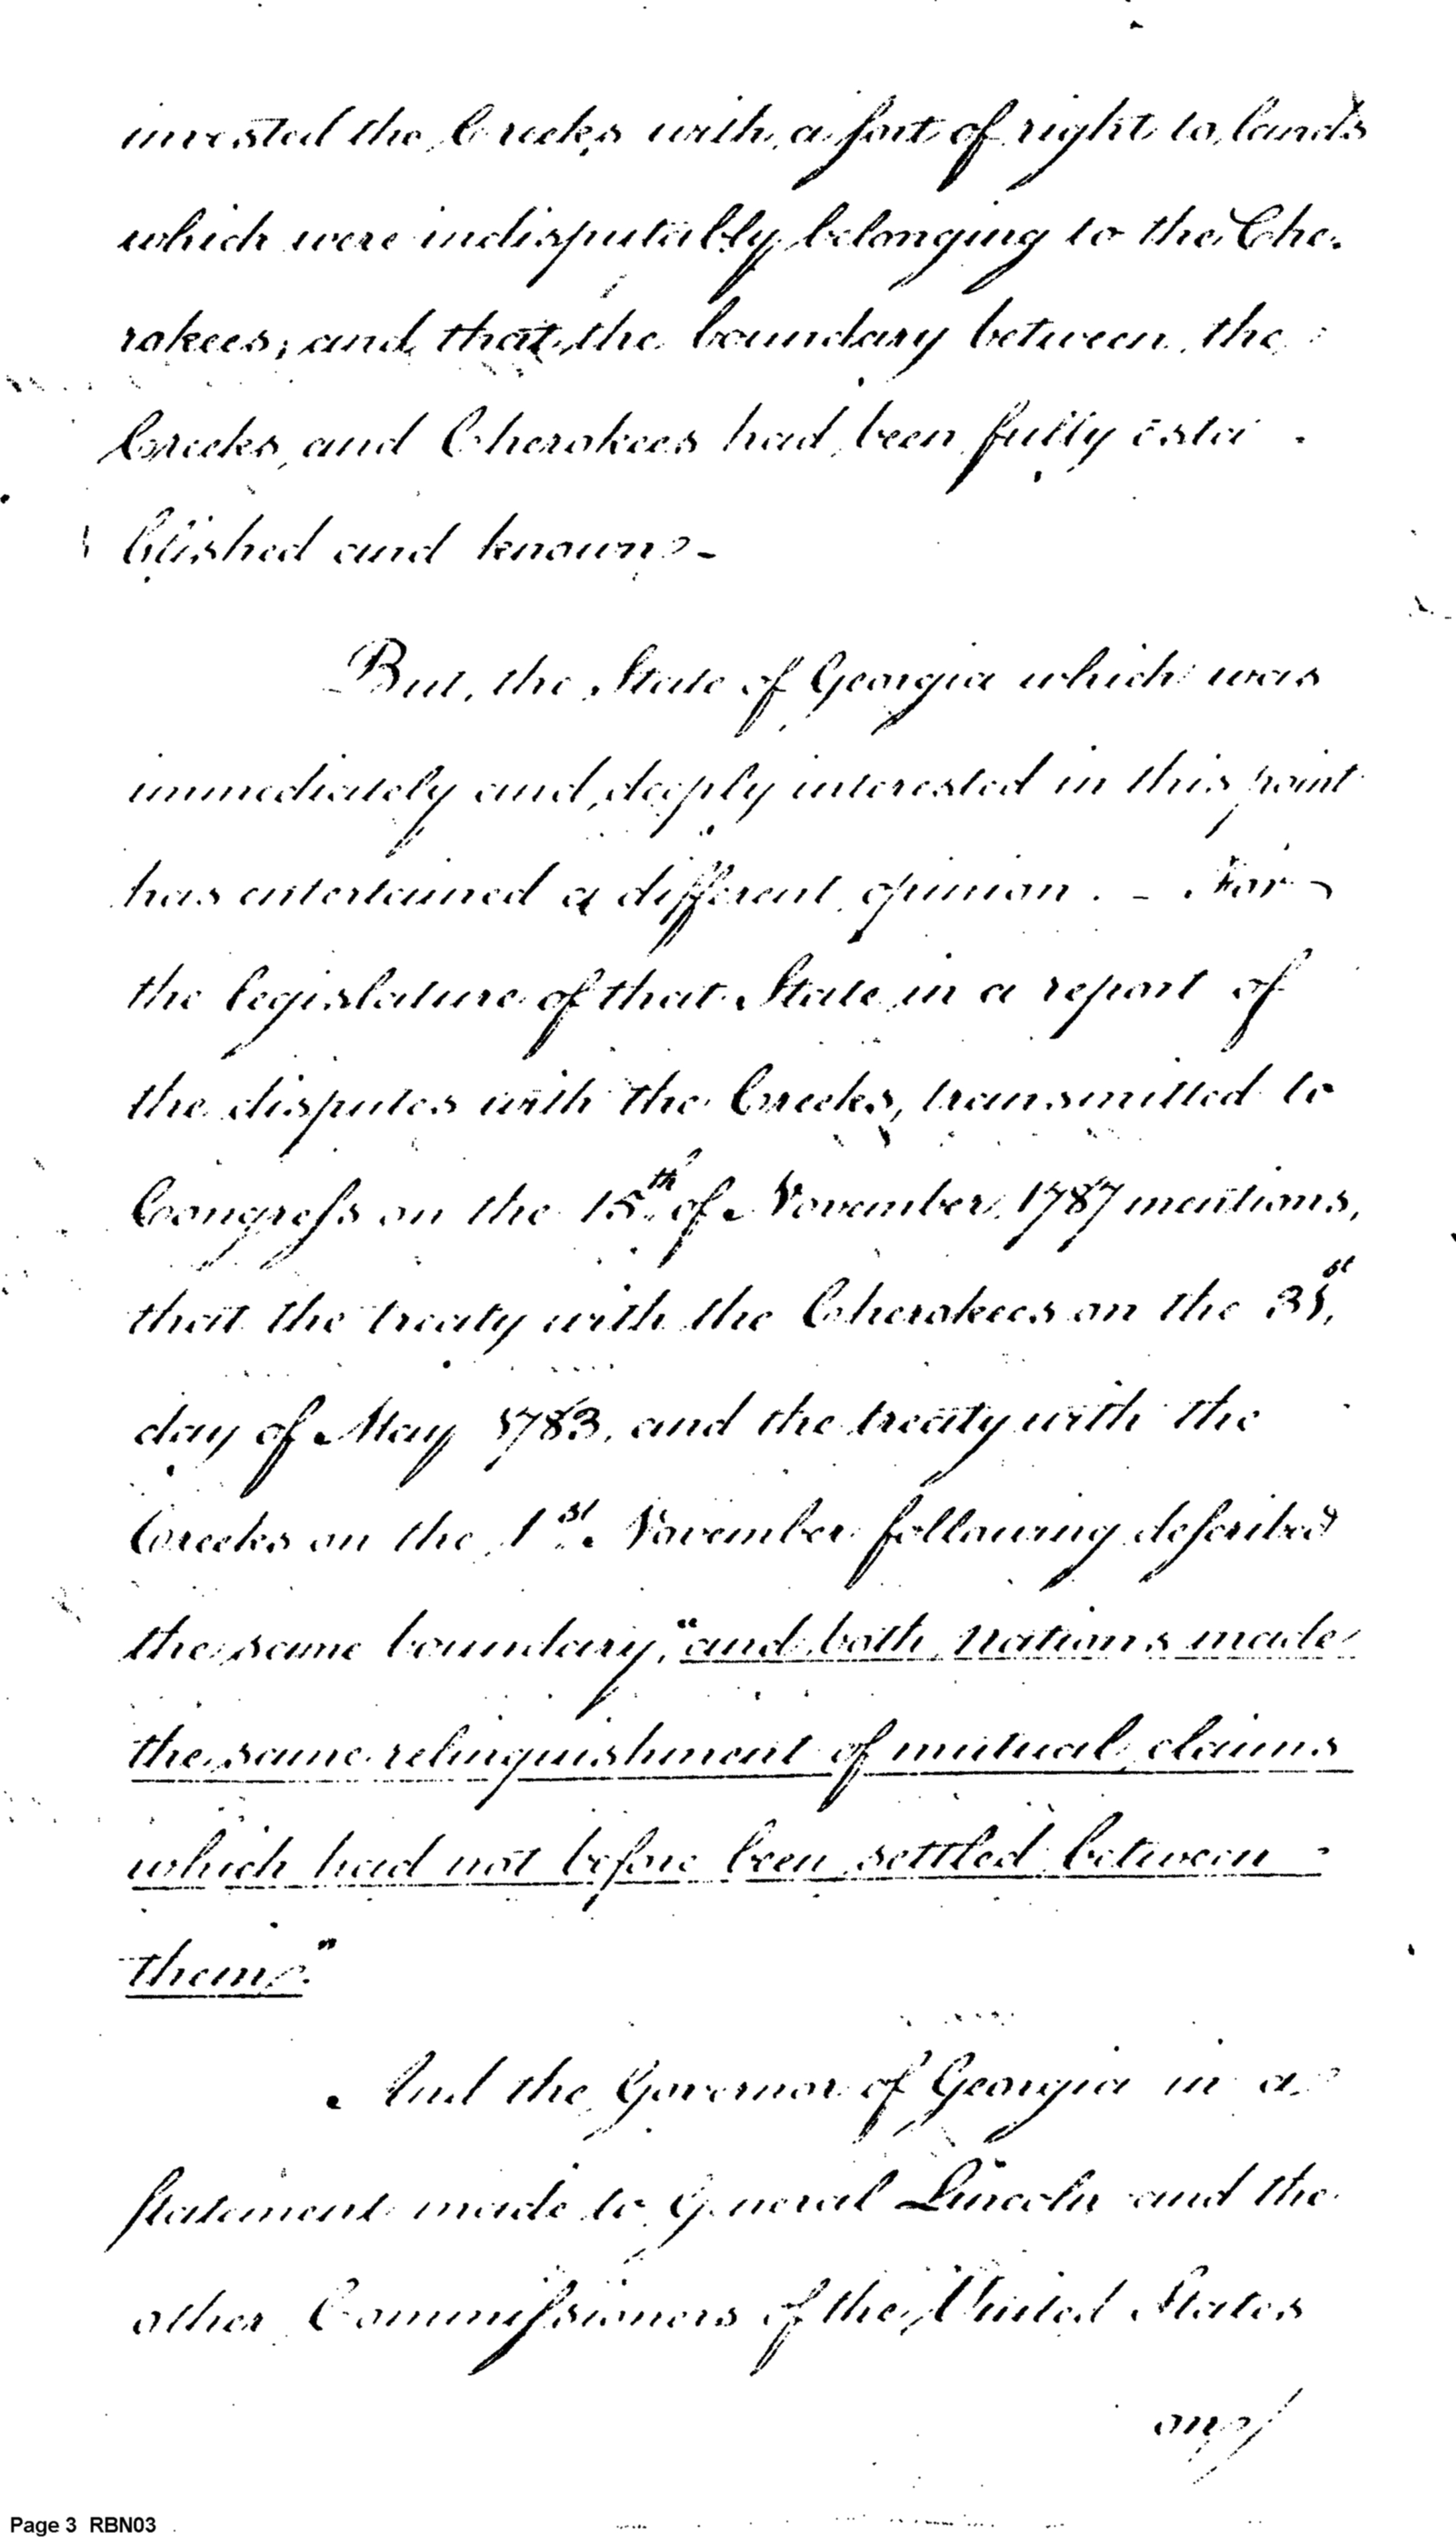 invested the Creeks with a sort of right to lands
which were indisputably belonging to the Che-
rokees; and that the boundary between the
Creeks, and Cherokees had been fully esta-
blished and known -
But, the State of Georgia which was
immediately and deeply interested in this point
has entertained a different opinion. - For
the legislature of that State in a report of
the disputes with the Creeks, transmitted to
Congress on the 15th of November 1787 mentions,
that the treaty with the Cherokees on the 31st
day of May 1783, and the treaty with the
Creeks on the 1st November following described
the same boundary, "and both nations made
the same relinquishment of mutual claims
which had not before been settled between
them."
And the Governor of Georgia in a
statement made to General Lincoln and the
other Commissioners of the United States
on
Page 3 RBN03